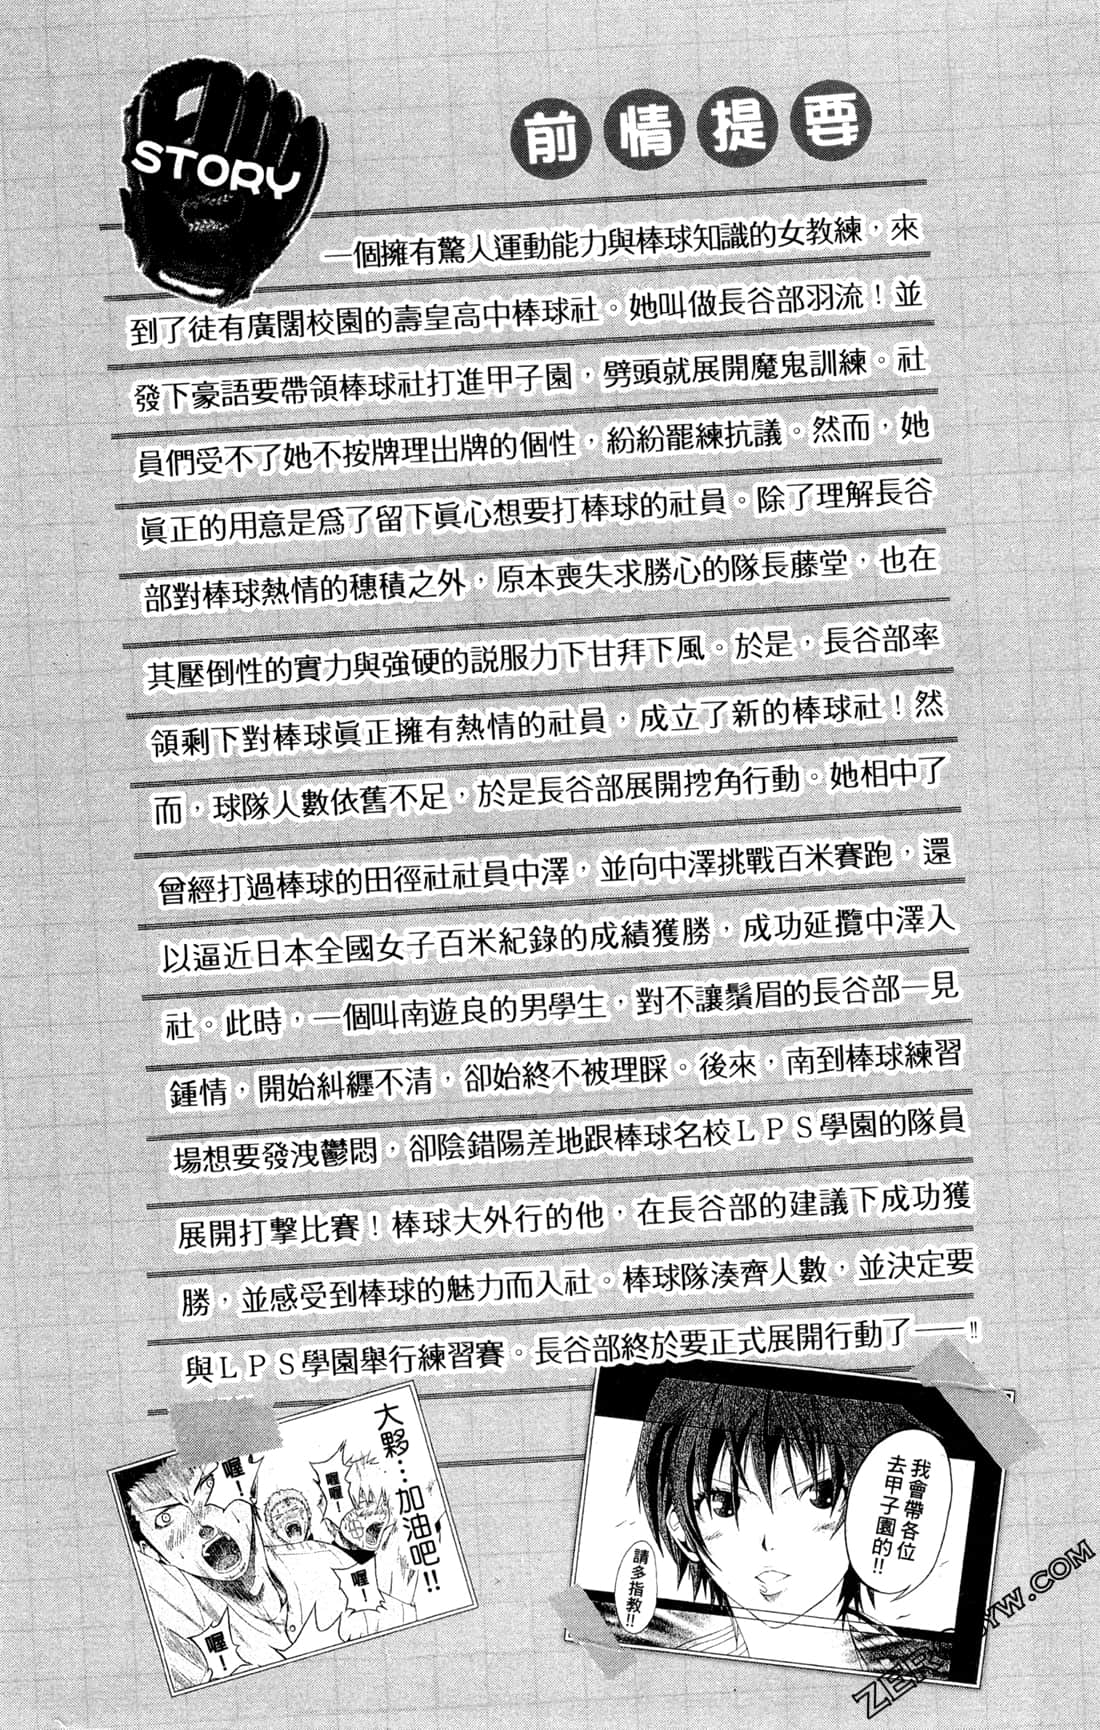 STORY
前情提要
一個擁有驚人運動能力與棒球知識的女教練，來
到了徒有廣闊校園的壽皇高中棒球社。她叫做長谷部羽流！並
發下豪語要帶領棒球社打進甲子園，劈頭就展開魔鬼訓練。社
員們受不了她不按牌理出牌的個性，紛紛罷練抗議。然而，她
眞正的用意是爲了留下眞心想要打棒球的社員。除了理解長谷
部對棒球熱情的穗積之外，原本喪失求勝心的隊長藤堂，也在
其壓倒性的實力與強硬的說服力下甘拜下風。於是，長谷部率
領剩下對棒球眞正擁有熱情的社員，成立了新的棒球社！然
而，球隊人數依舊不足，於是長谷部展開挖角行動。她相中了
曾經打過棒球的田徑社社員中澤，並向中澤挑戰百米賽跑，還
以逼近日本全國女子百米紀錄的成績獲勝，成功延攬中澤入
社。此時，一個叫南遊良的男學生，對不讓鬚眉的長谷部一見
鍾情，開始糾纏不清，卻始終不被理睬。後來，南到棒球練習
場想要發洩鬱悶，卻陰錯陽差地跟棒球名校ＬＰＳ學園的隊員
展開打擊比賽！棒球大外行的他，在長谷部的建議下成功獲
勝，並感受到棒球的魅力而入社。棒球隊湊齊人數，並決定要
與ＬＰＳ學園舉行練習賽。長谷部終於要正式展開行動了——!!
大夥…加油吧!!
喔！
喔喔！
喔！
喔！
我會帶各位
去甲子園的!!
請多指教!!